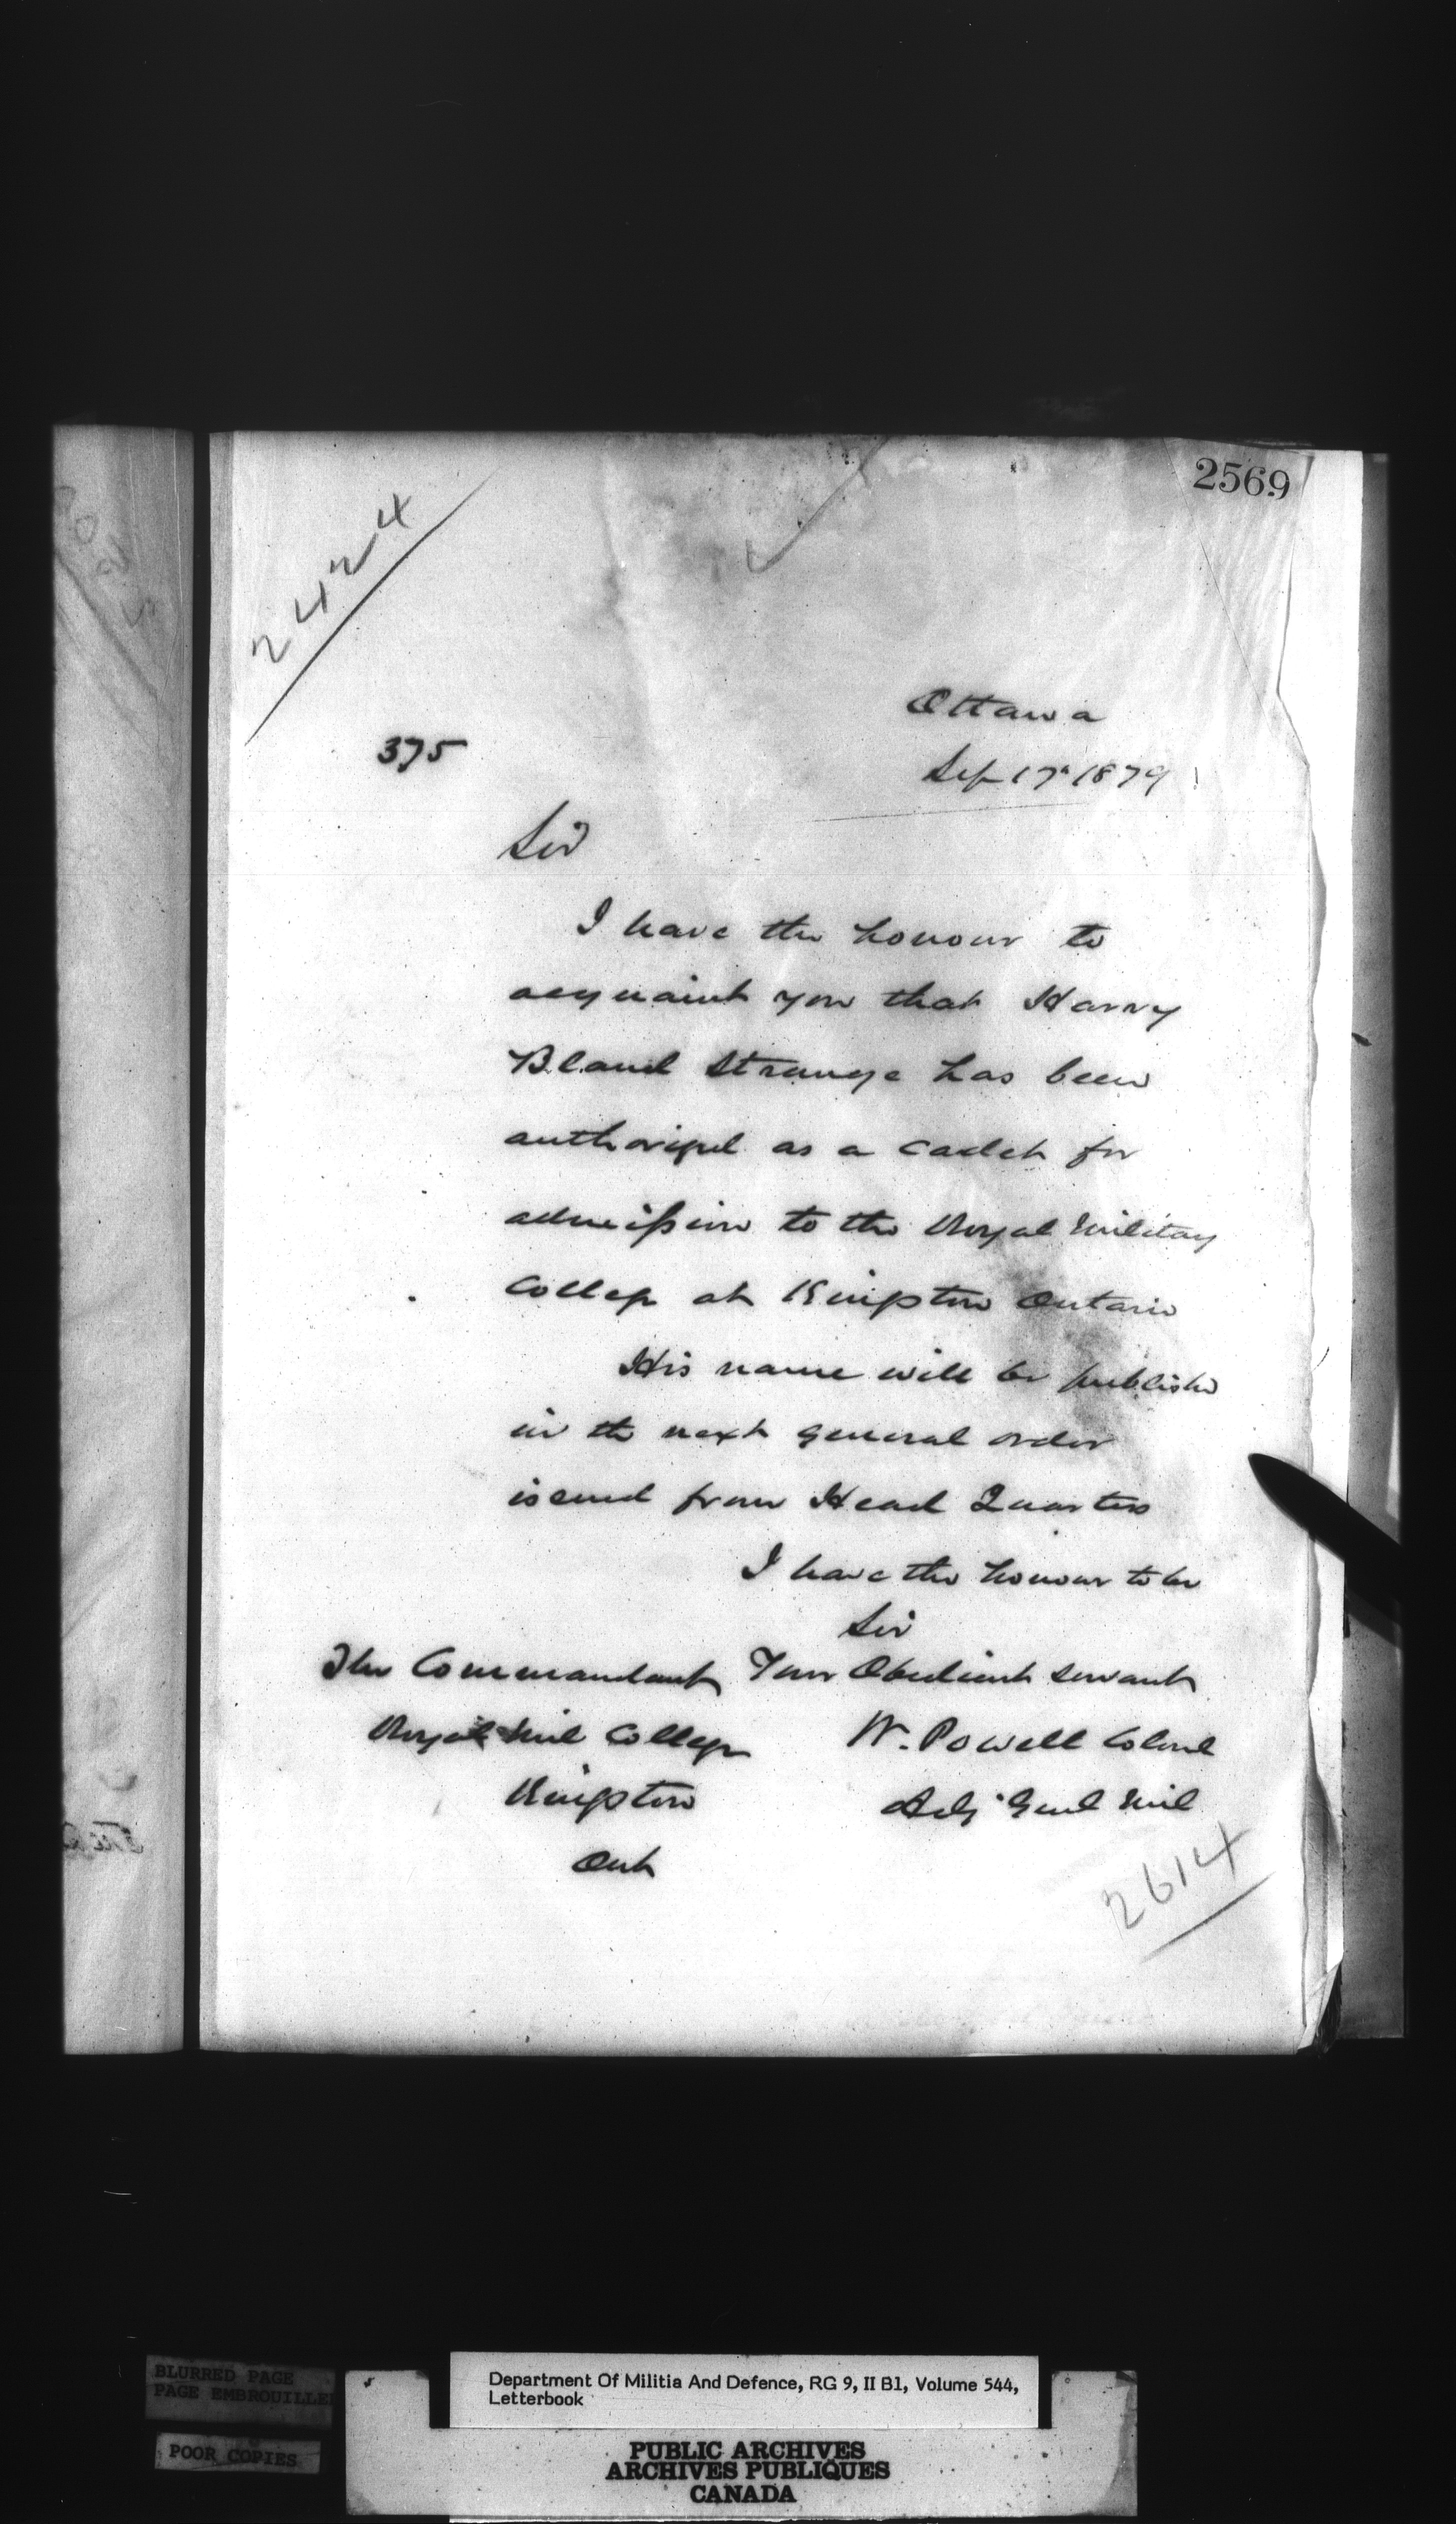 2569
2424
Ottawa
375
Sep 17th 1879
Sir
I have the honour to
acquaint you that Harry
Bland Strange has been
authorized as a cadet for
admission to the Royal Military
College at Kingston Ontario
His name will be publishd
in the next general order
issued from Head Quarters
I have the honour to be
Sir
The Commandant Your Obedient servant
Royal Mil College W. Powell Colonel
Kingston Adj Genl Mil
Ont
2614
BLURRED PAGE
PAGE EMBROUILLEE
POOR COPIES
Department Of Militia And Defence, RG 9, II B1, Volume 544,
Letterbook
PUBLIC ARCHIVES
ARCHIVES PUBLIQUES
CANADA